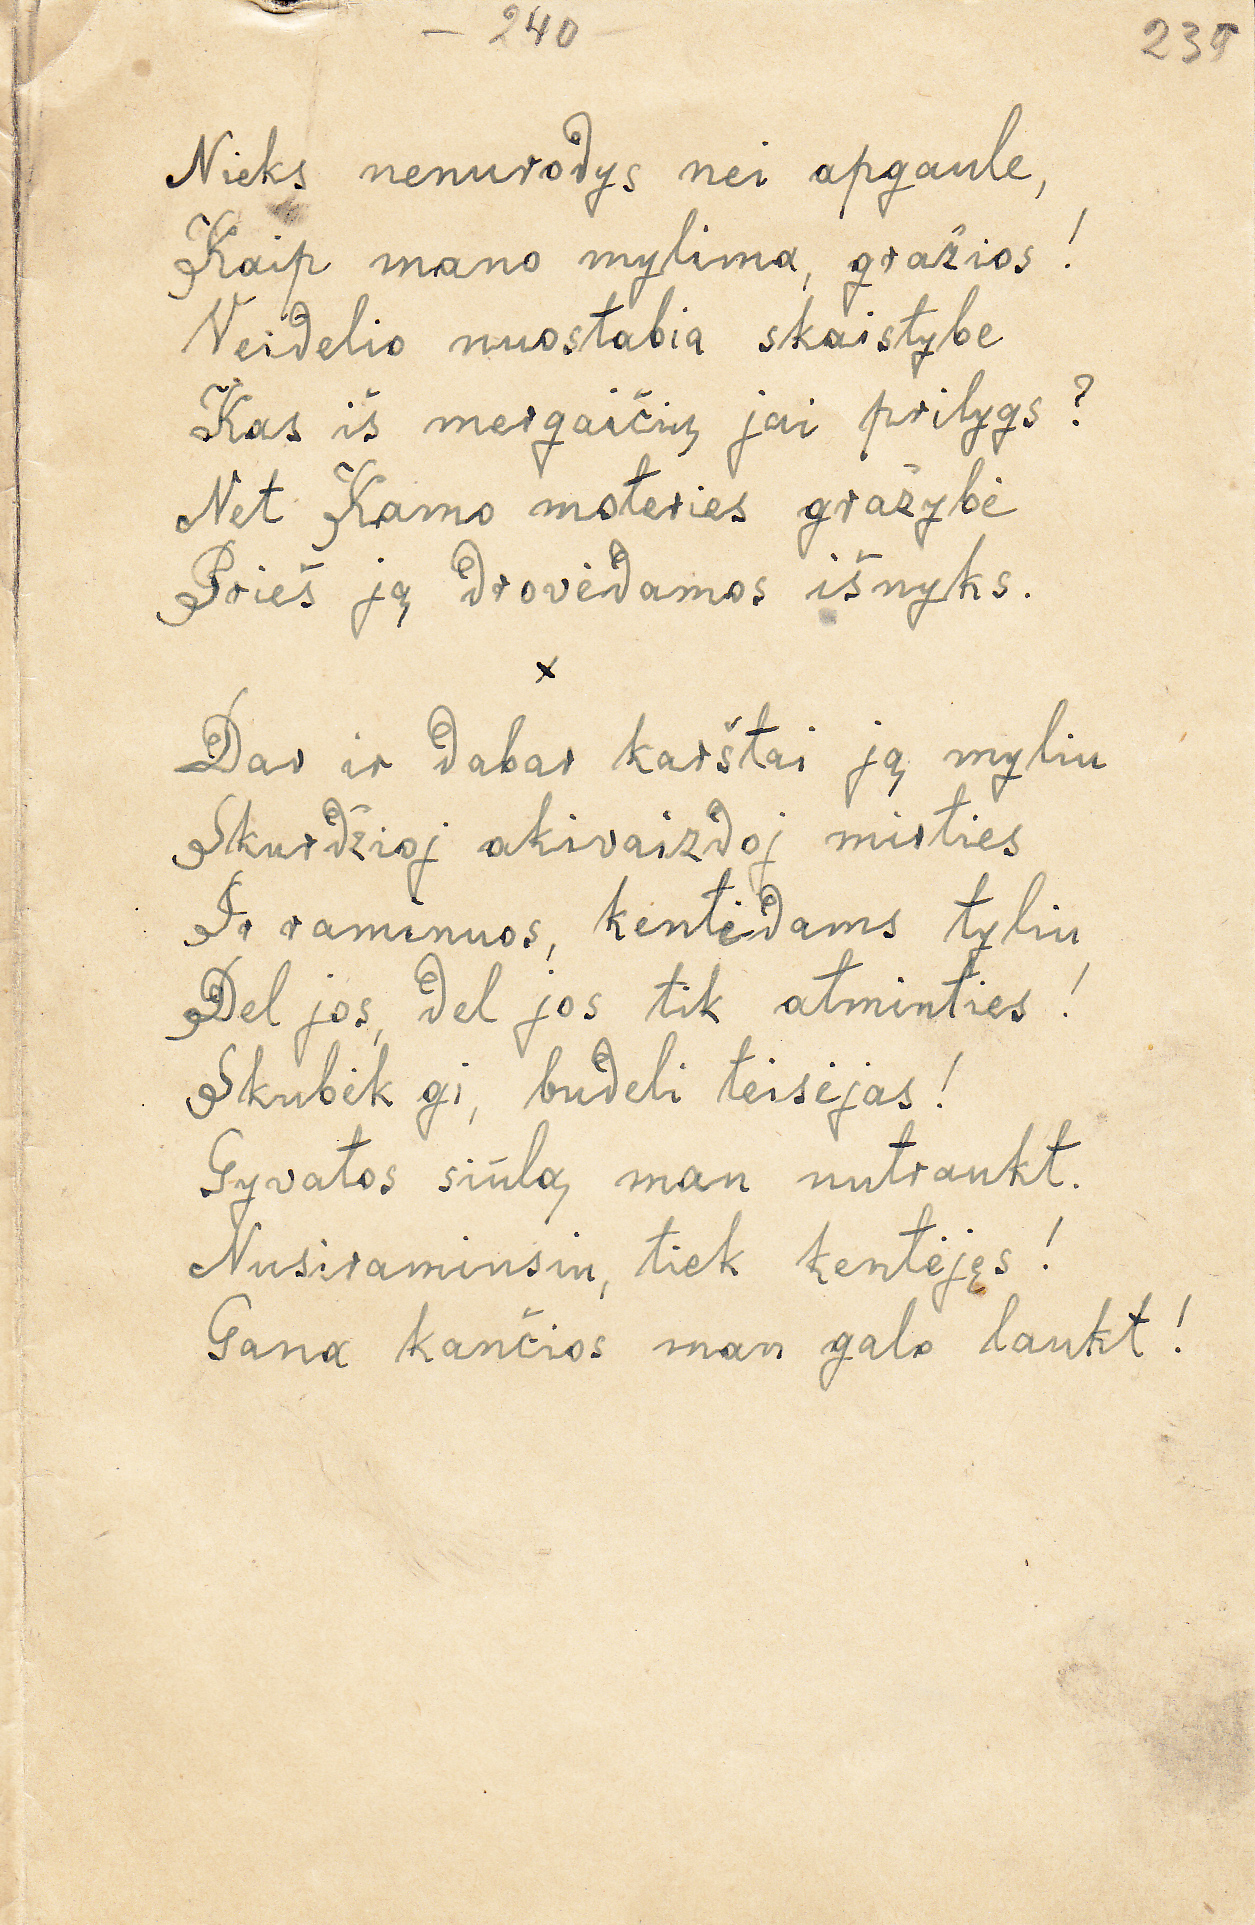 – 240
239
Nieks nenurodys nei apgaule,
Kaip mano mylima, gražios!
Veidelio nuostabia skaistybe
Kas iš mergaičių jai prilygs?
Net Kamo moteries gražybė
Prieš ją drovėdamos išnyks.
x
Dar ir dabar karštai ją myliu
Skurdžioj akivaizdoj mirties
Ir raminuos, kentėdams tyliu,
Del jos, del jos tik atminties!
Skubėk gi, budeli teisėjas!
Gyvatos siūlą man nutraukt.
Nusiraminsiu, tiek kentėjęs!
Gana kančios man galo laukt!